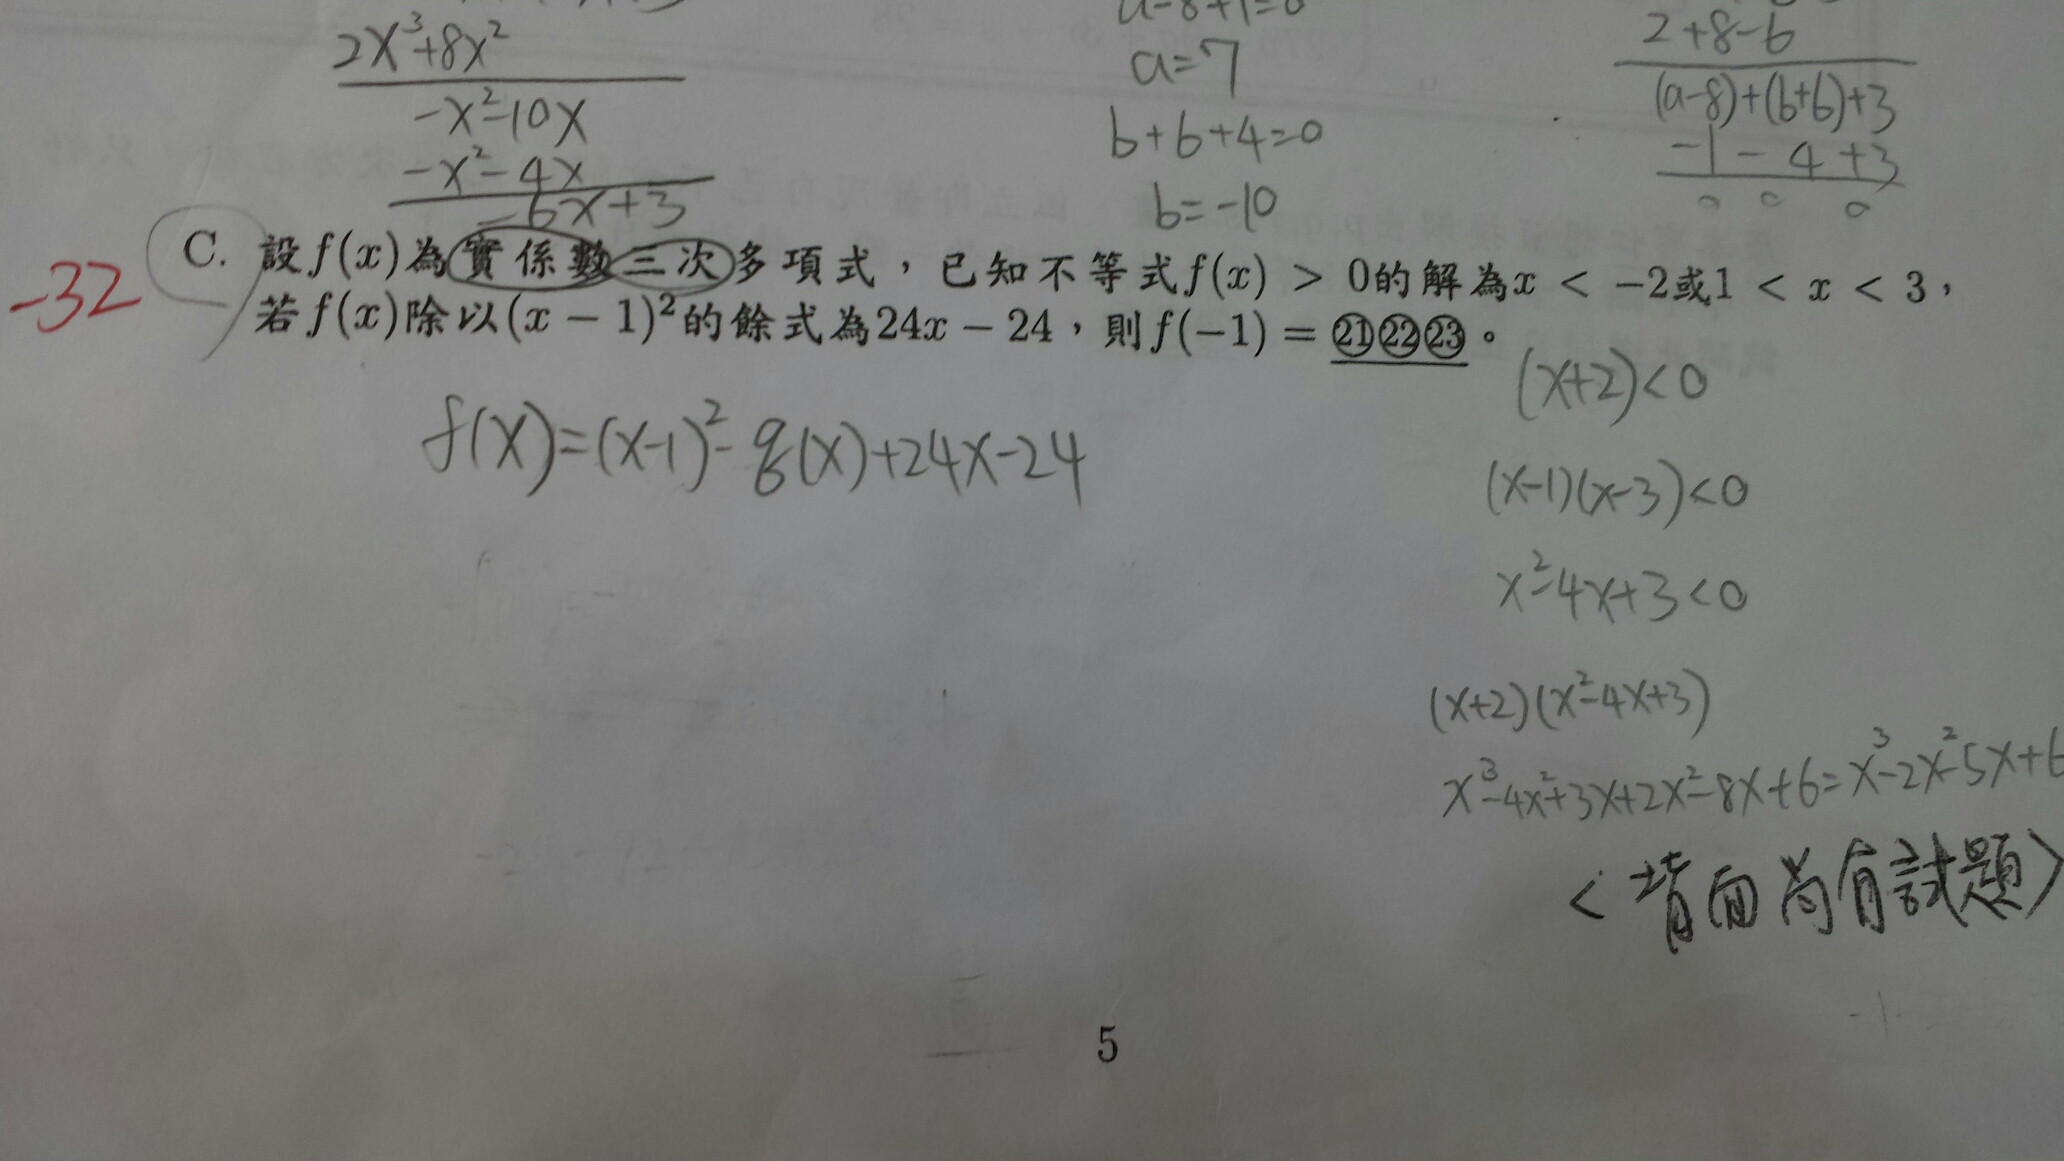 2x³+8x²
-x²-10x
-x²-4x
-6x+3
a-8+1=0
a=7
b+6+4=0
b=-10
2+8-6
(a-8)+(b+6)+3
-1-4+3
0 0 0
-32
C. 設f(x)為實係數三次多項式，已知不等式f(x) > 0的解為x < −2或1 < x < 3，
若f(x)除以(x − 1)²的餘式為24x − 24，則f(−1) = ㉑㉒㉓。
f(x)=(x-1)²-q(x)+24x-24
(x+2)<0
(x-1)(x-3)<0
x²-4x+3<0
(x+2)(x²-4x+3)
x³-4x²+3x+2x²-8x+6=x³-2x²-5x+6
<背面尚有試題>
5